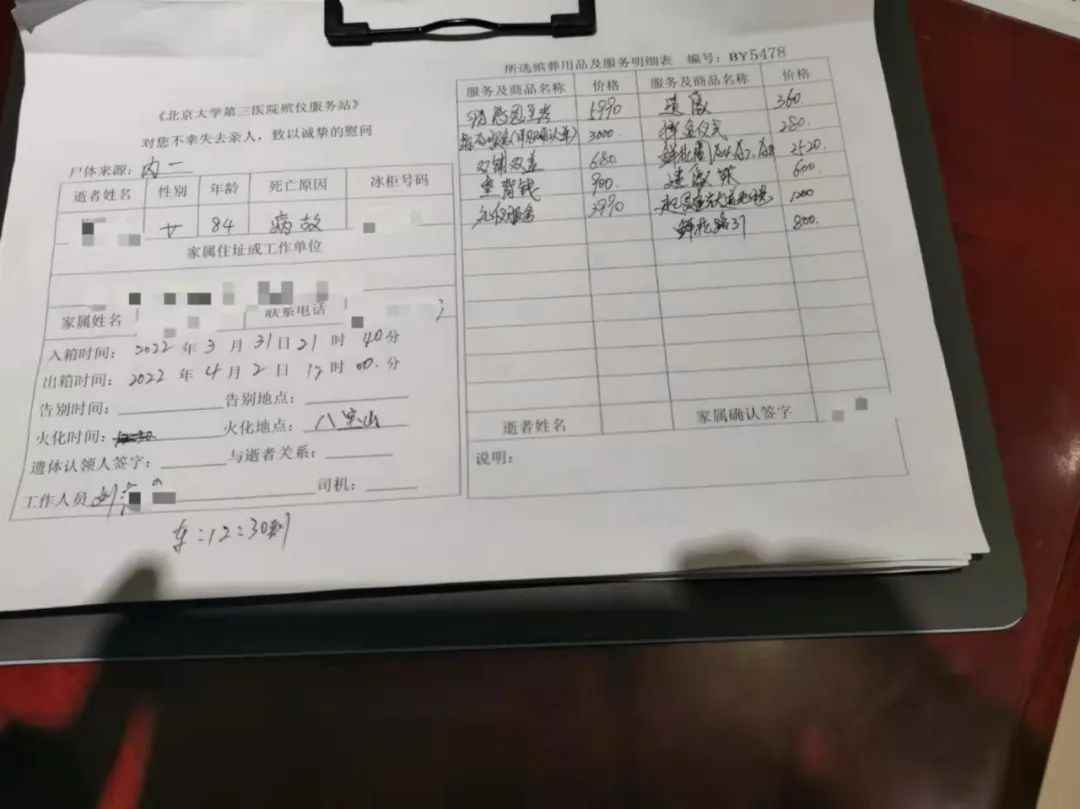 《北京大学第三医院殡仪服务站》
对您不幸失去亲人，致以诚挚的慰问
尸体来源：内一
逝者姓名 性别 年龄 死亡原因 冰柜号码
女 84 病故
家属住址或工作单位
家属姓名 联系电话
入箱时间：2022年3月31日21时40分
出箱时间：2022年4月2日12时00分
告别时间： 告别地点：
火化时间： 火化地点：八宝山
遗体认领人签字： 与逝者关系：
工作人员 司机：
车：12：30到
所选殡葬用品及服务明细表 编号：BY5478
服务及商品名称 价格 服务及商品名称 价格
5990 遗像 360
3000 280
双铺双盖 680 2520
垫背钱 900 600
礼仪服务 3990
鲜花 800
逝者姓名 家属确认签字
说明：